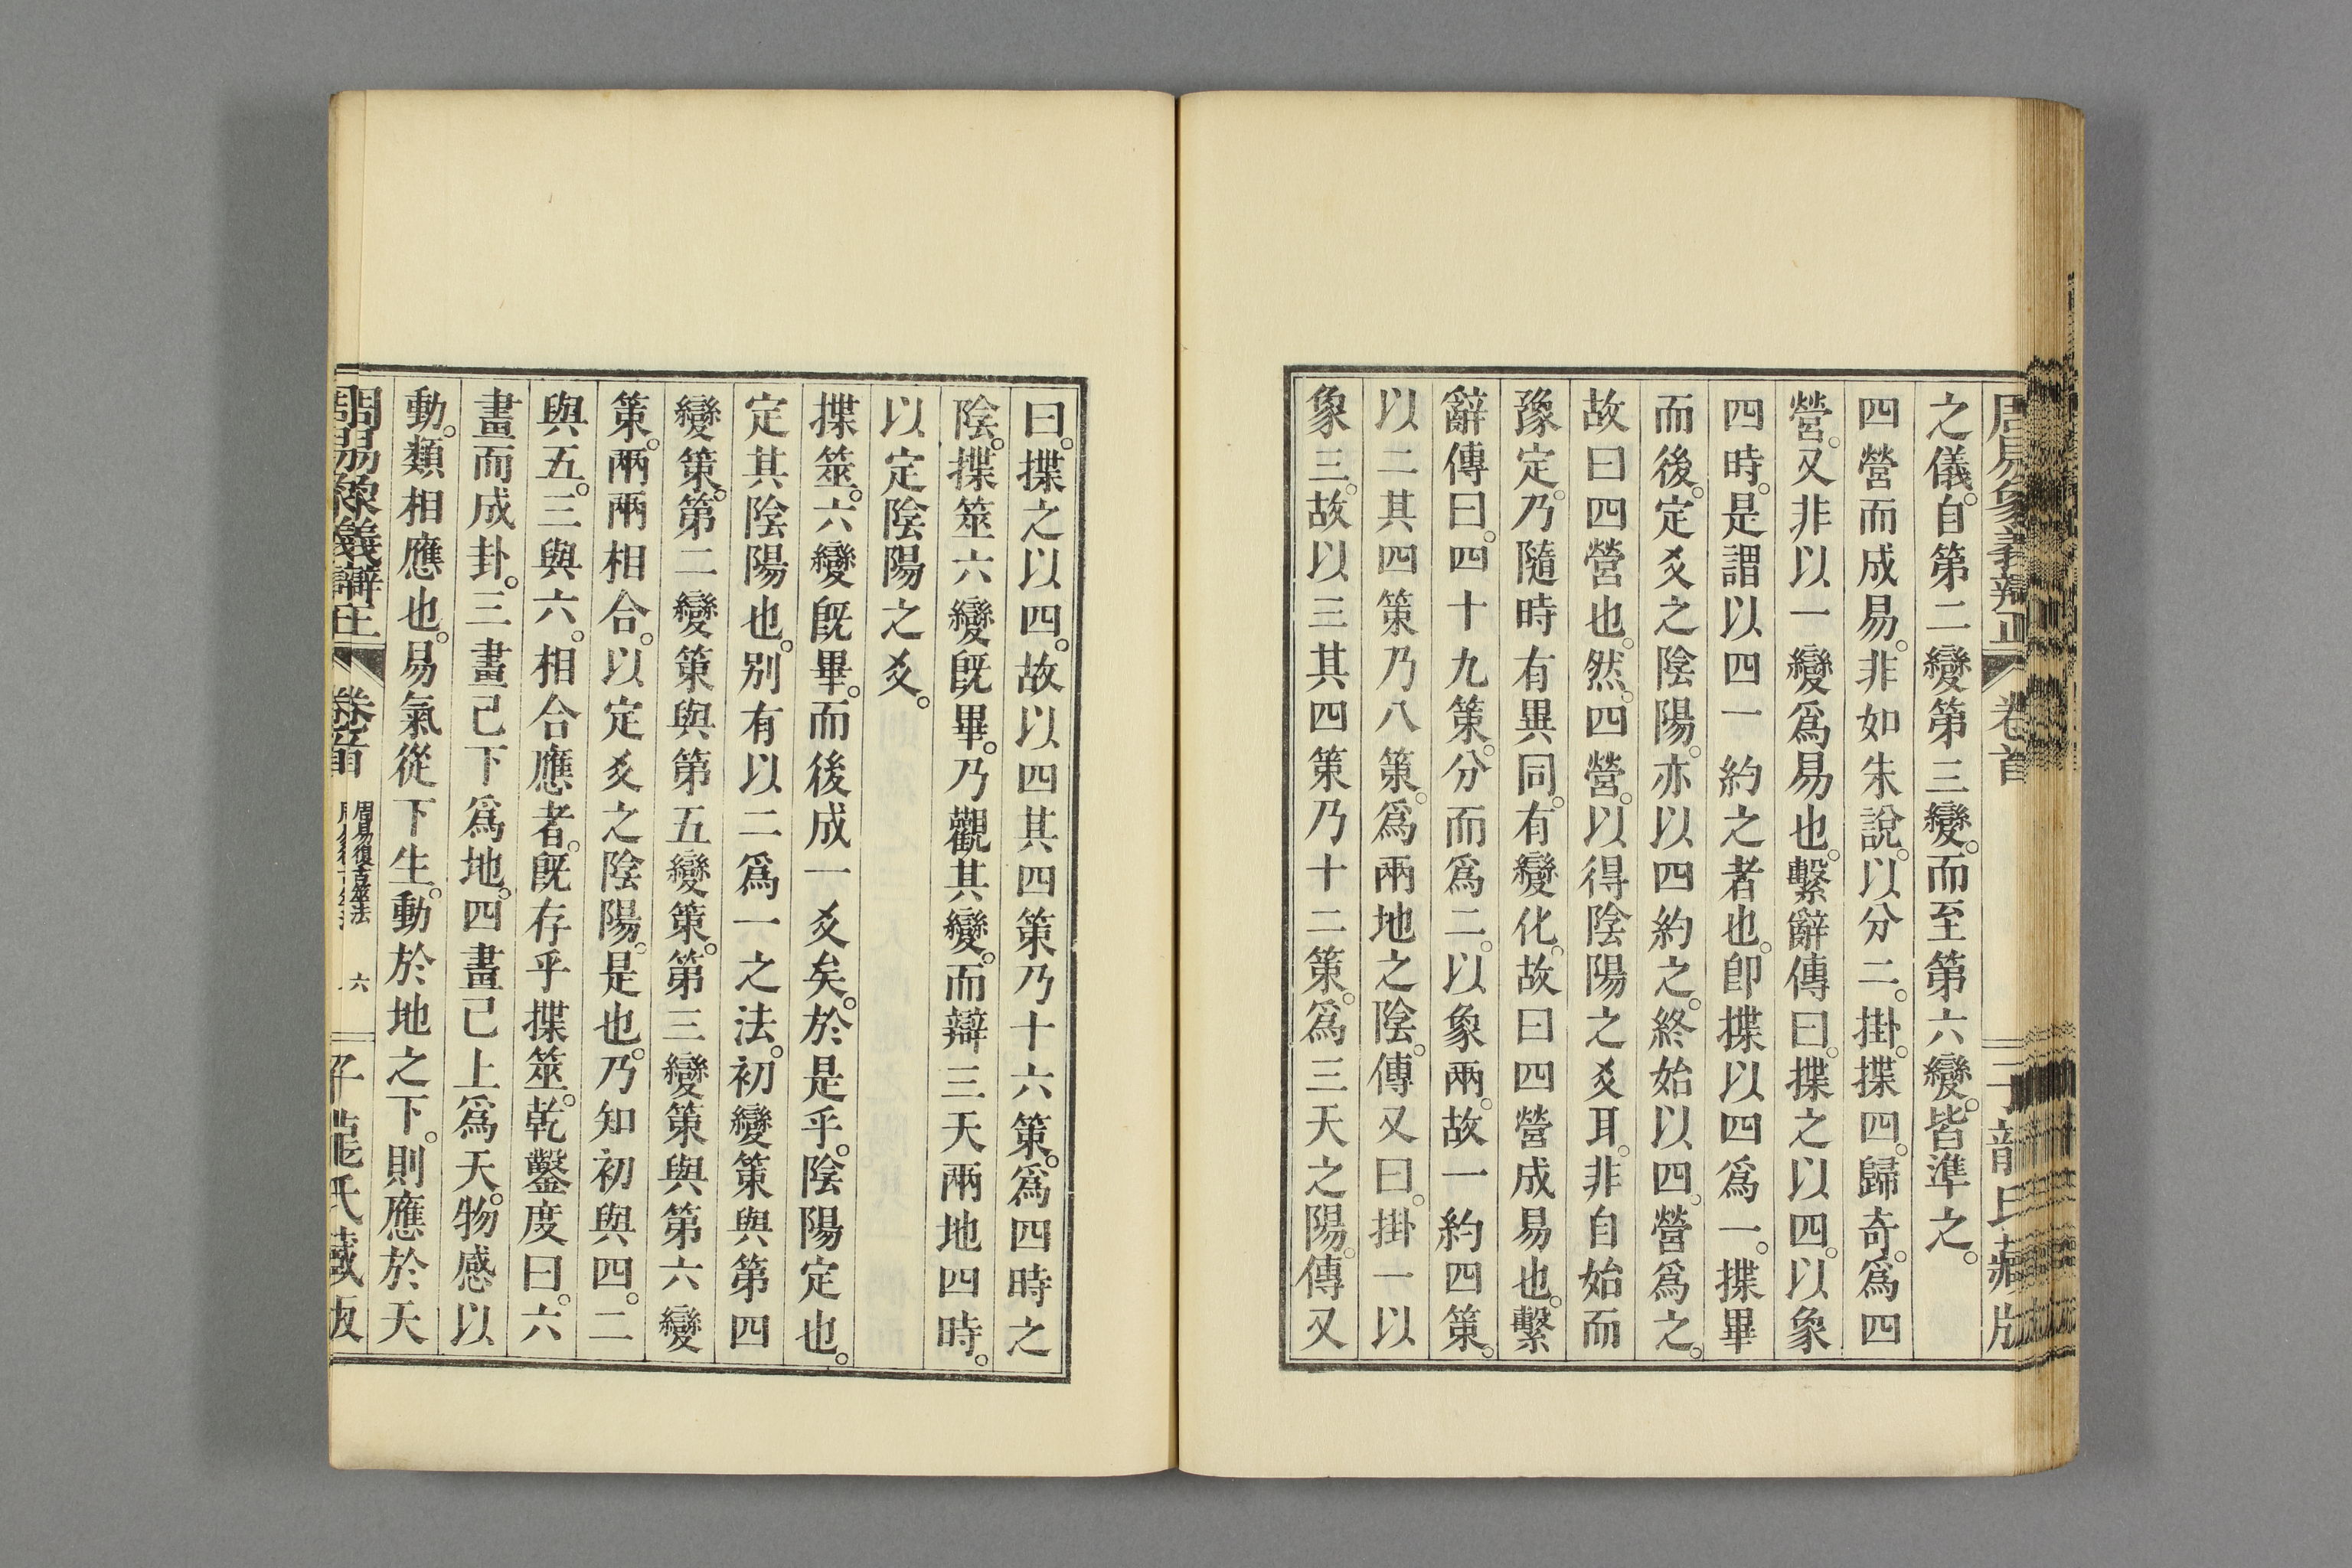 周易象義辯正 卷首 子龍氏藏版
之儀。自第二變第三變。而至第六變。皆準之。
四營而成易。非如朱說。以分二。掛。揲四。歸奇。爲四
營。又非以一變爲易也。繫辭傳曰。揲之以四。以象
四時。是謂以四一約之者也。卽揲以四爲一。揲畢
而後。定爻之陰陽。亦以四約之。終始以四。營爲之。
故曰四營也。然。四營。以得陰陽之爻耳。非自始而
豫定。乃隨時有異同。有變化。故曰四營成易也。繫
辭傳曰。四十九策。分而爲二。以象兩。故一約四策。
以二其四策乃八策。爲兩地之陰。傳又曰。掛一以
象三。故以三其四策乃十二策。爲三天之陽。傳又
曰。揲之以四。故以四其四策乃十六策。爲四時之
陰。揲筮六變旣畢。乃觀其變。而辯三天兩地四時。
以定陰陽之爻。
揲筮。六變旣畢。而後成一爻矣。於是乎。陰陽定也。
定其陰陽也。別有以二爲一之法。初變策與第四
變策。第二變策與第五變策。第三變策與第六變
策。兩兩相合。以定爻之陰陽。是也。乃知初與四。二
與五。三與六。相合應者。旣存乎揲筮。乾鑿度曰。六
畫而成卦。三畫已下爲地。四畫已上爲天。物感以
動。類相應也。易氣從下生。動於地之下。則應於天
周易象義辯正 卷首 周易復古筮法 六 子龍氏藏版